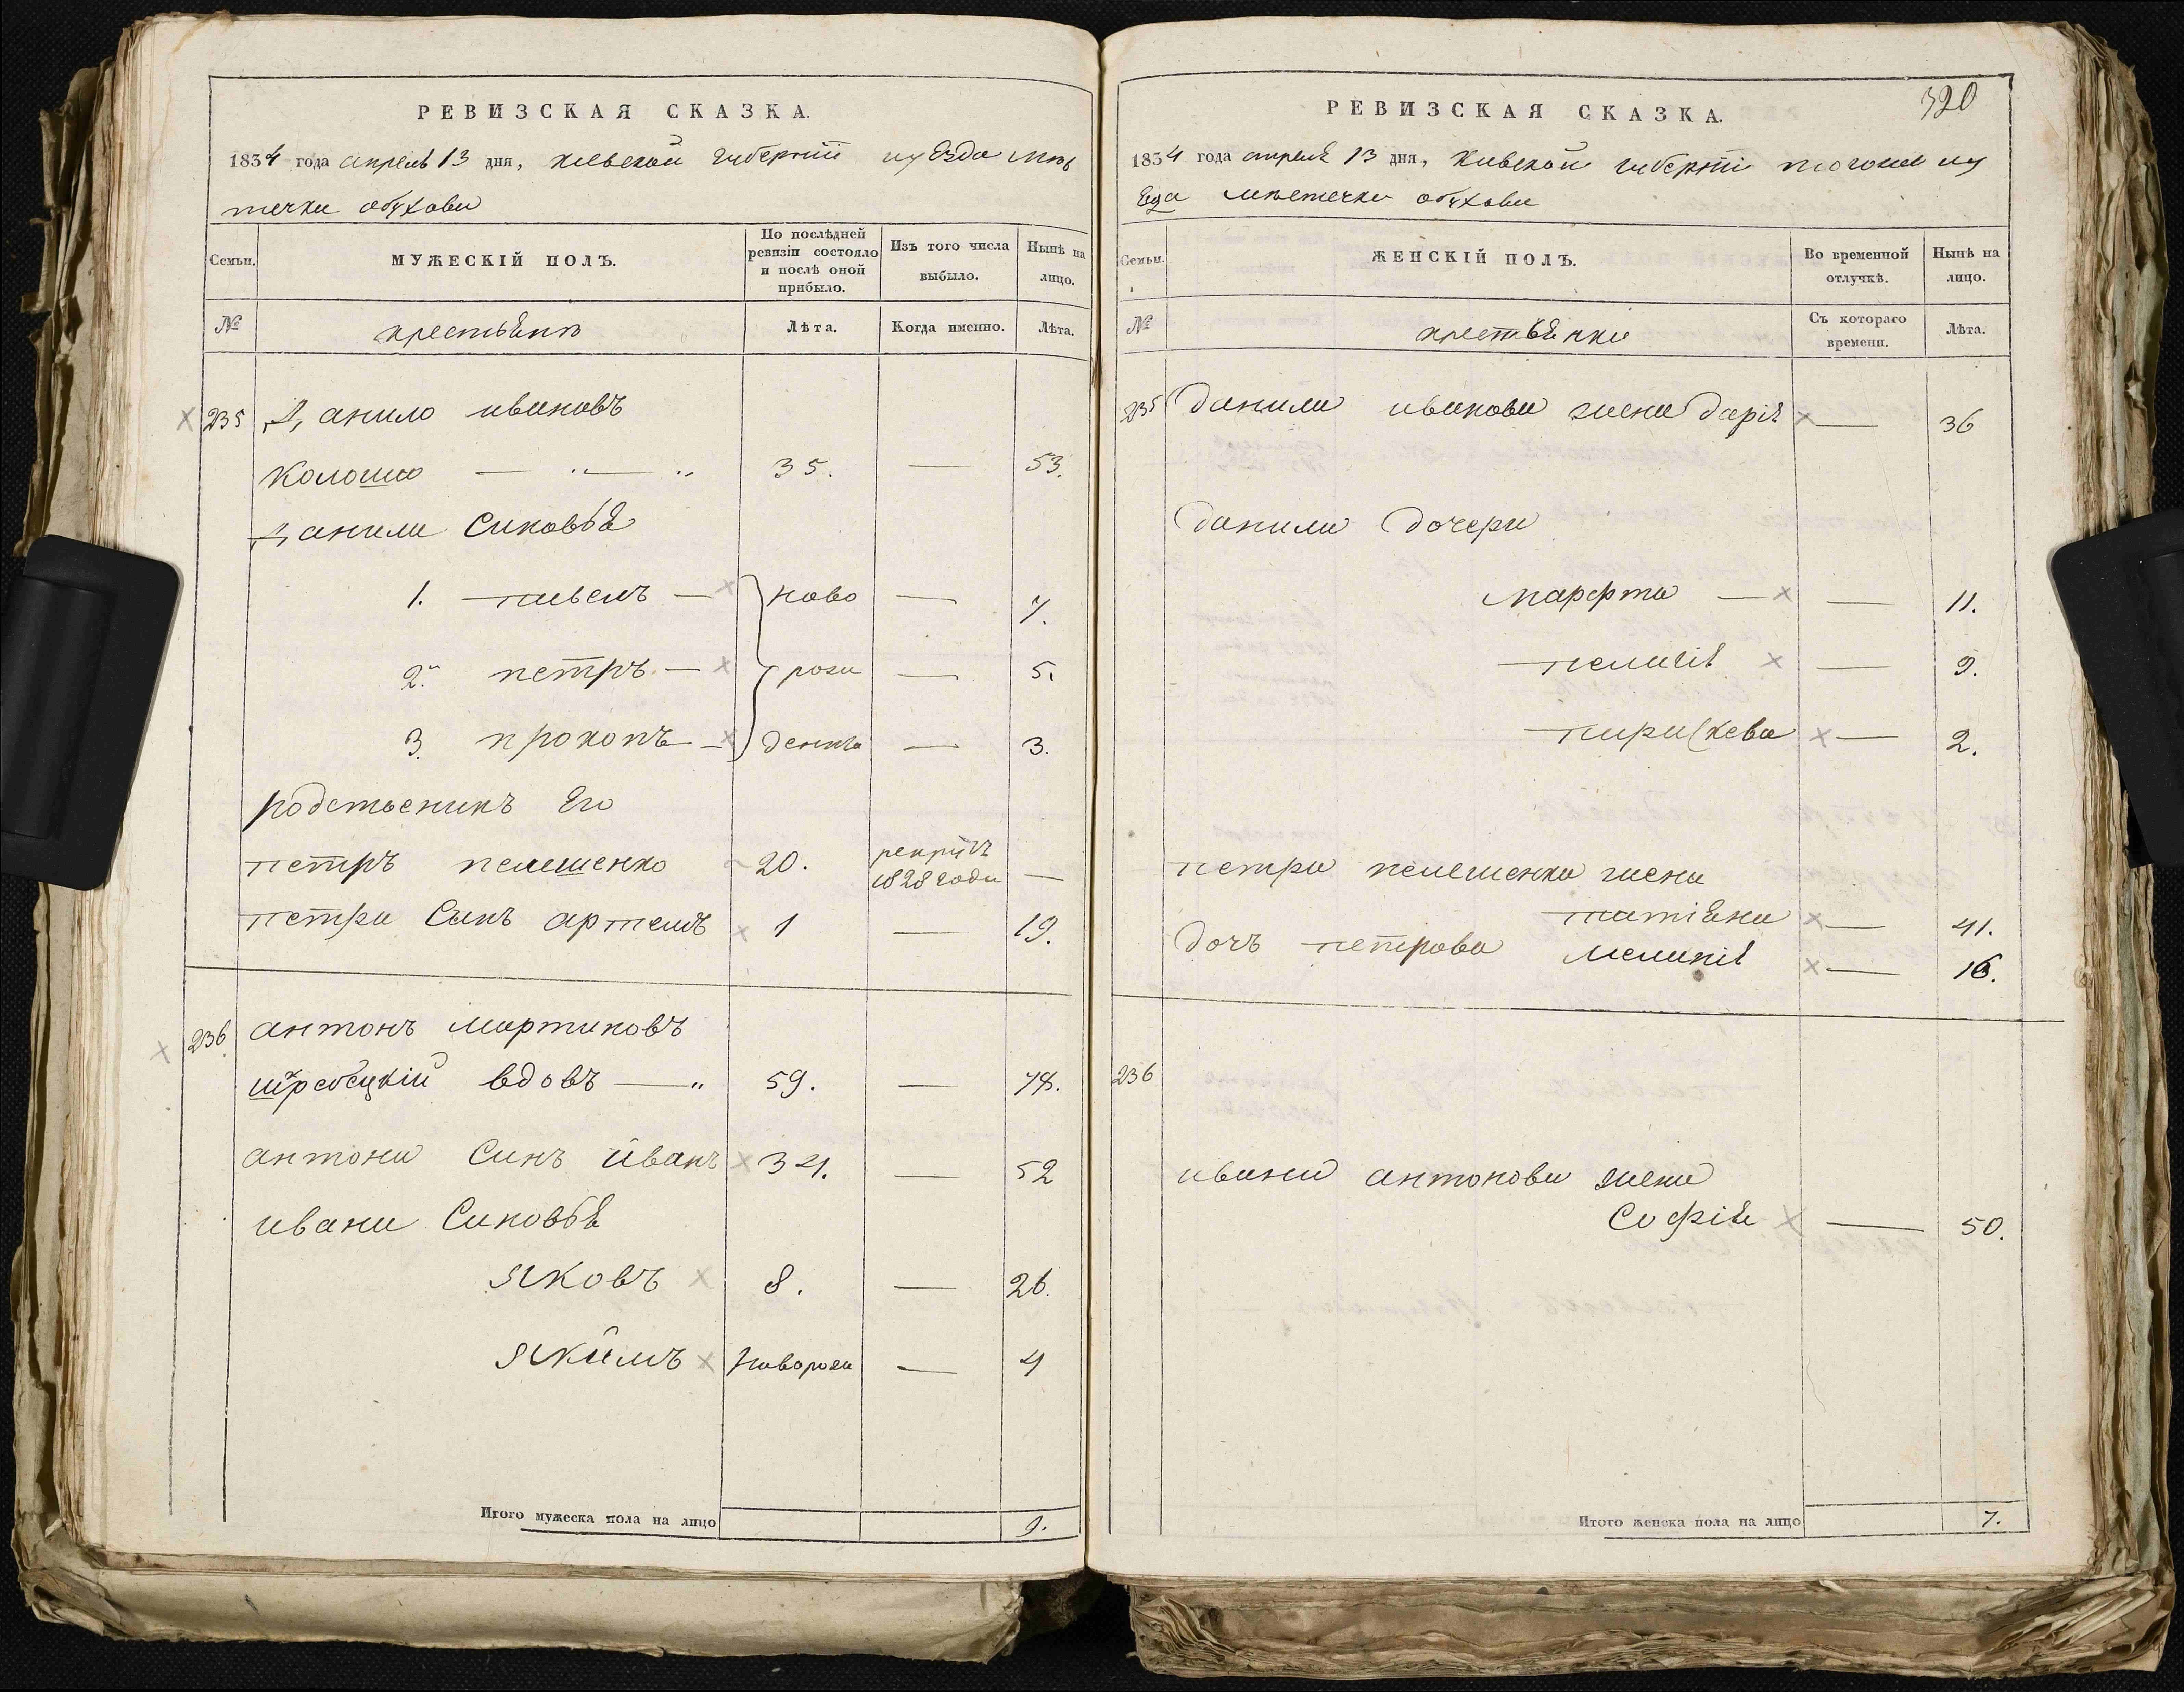 РЕВИЗСКАЯ СКАЗКА.
1834 года апреля 13 дня, киевской губернии уезда мѣс
течка обухова
Семьи. МУЖЕСКІЙ ПОЛЪ. По послѣдней ревизіи состояло и послѣ оной прибыло. Изъ того числа выбыло. Нынѣ на лицо.
№ крестьяне Лѣта. Когда именно. Лѣта.
235 Данило ивановъ
Колоша — 35. — 53.
Данила Синовья
1. павелъ — ново — 7.
2. петръ — рож — 5.
3. прокопъ — денны — 3.
родственикъ Его
петръ пелешенко 20. рекрутъ 1828 года —
петра Синъ артемъ 1 — 19.
236 антонъ мартиновъ
вдовъ — 59. — 78.
антона Синъ иванъ 34. — 52
ивана Синовья
яковъ 8. — 26.
якимъ новорож — 4
Итого мужеска пола на лицо 9.
РЕВИЗСКАЯ СКАЗКА. 320
1834 года апреля 13 дня, Киевской губерніи тогоже уу
ѣзда мѣстечка обухова
Семьи. ЖЕНСКІЙ ПОЛЪ. Во временной отлучкѣ. Нынѣ на лицо.
№ крестьянки Съ котораго времени. Лѣта.
235 Данила иванова жена дарія — 36
Данила Дочери
марфта — — 11.
пелагія — 9.
параскева — 2.
петра пелешенка жена
татіяна — 41.
Дочъ петрова меланія — 16.
236
ивана антонова жена
Софія — 50.
Итого женска пола на лицо 7.